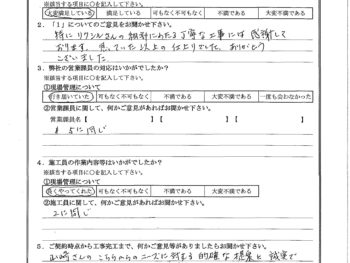 ※該当する項目に〇を記入して下さい。
大変満足している 満足している 可もなく不可もなく 不満である 大変不満である
2．「1」についてのご意見をお聞かせ下さい。
特に
丁寧な工事には感謝して
おります。思っていた以上の仕上りでした。ありがとう
ございました
3．弊社の営業課員の対応はいかがでしたか？
※該当する項目に〇を記入して下さい。
①現場管理について
行き届いていた 可もなく不可もなく 不満である 大変不満である 一度も会わなかった
②営業課員に関して、何かご意見があればお聞かせ下さい。
営業課員名【 】【 】【 】
5に同じ
4．施工員の作業内容等はいかがでしたか？
※該当する項目に〇を記入して下さい。
①現場管理について
良くやってくれた 可もなく不可もなく 不満である 大変不満である
②施工員に関して、何かご意見があればお聞かせ下さい。
2に同じ
5．ご契約時点から工事完工まで、何かご意見等がありましたらお聞かせ下さい。
山崎さんのこちらからのニーズに対する的確な提案と誠実で